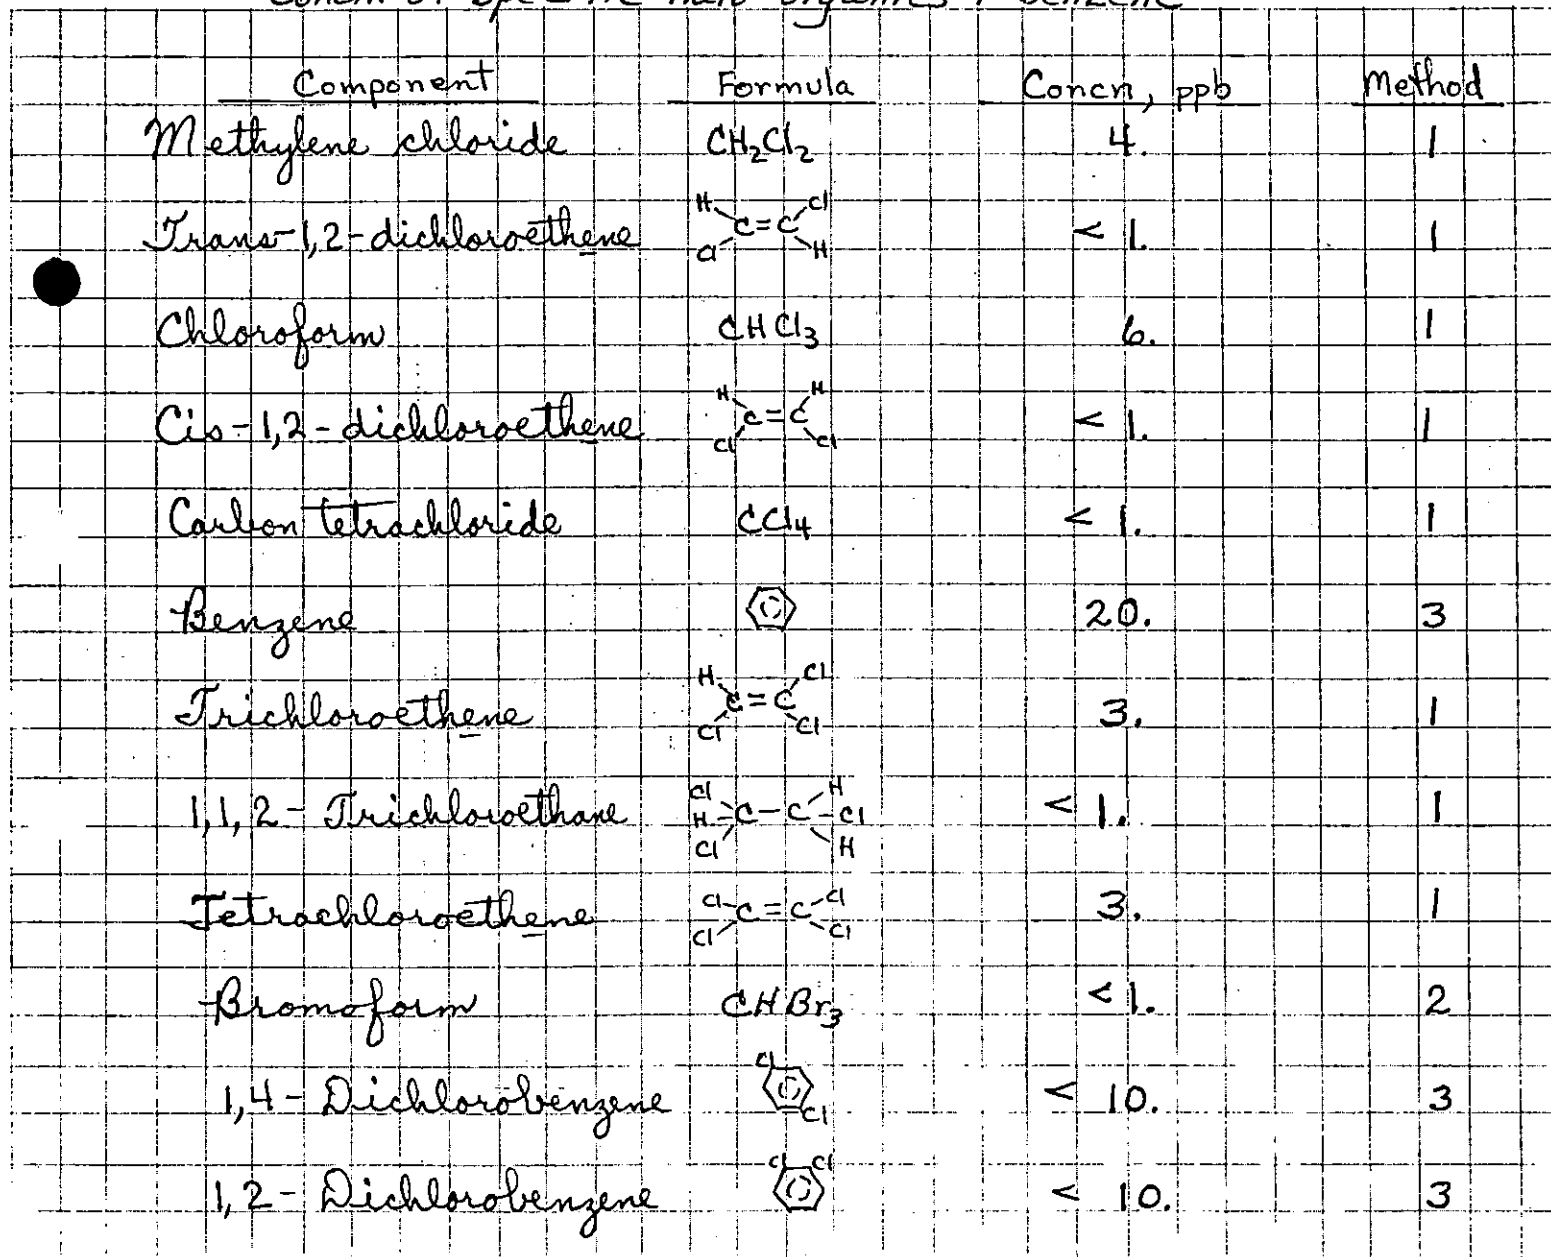 Concn of specific halo organics + benzene
Component Formula Concn, ppb Method
Methylene chloride CH₂Cl₂ 4. 1
Trans-1,2-dichloroethene H Cl C=C Cl H < 1. 1
Chloroform CHCl₃ 6. 1
Cis-1,2-dichloroethene H H C=C Cl Cl < 1. 1
Carbon tetrachloride CCl₄ < 1. 1
Benzene 20. 3
Trichloroethene H Cl C=C Cl Cl 3. 1
1,1,2-Trichloroethane Cl H H-C-C-Cl Cl H < 1. 1
Tetrachloroethene Cl Cl C=C Cl Cl 3. 1
Bromoform CHBr₃ < 1. 2
1,4-Dichlorobenzene Cl Cl < 10. 3
1,2-Dichlorobenzene Cl Cl < 10. 3